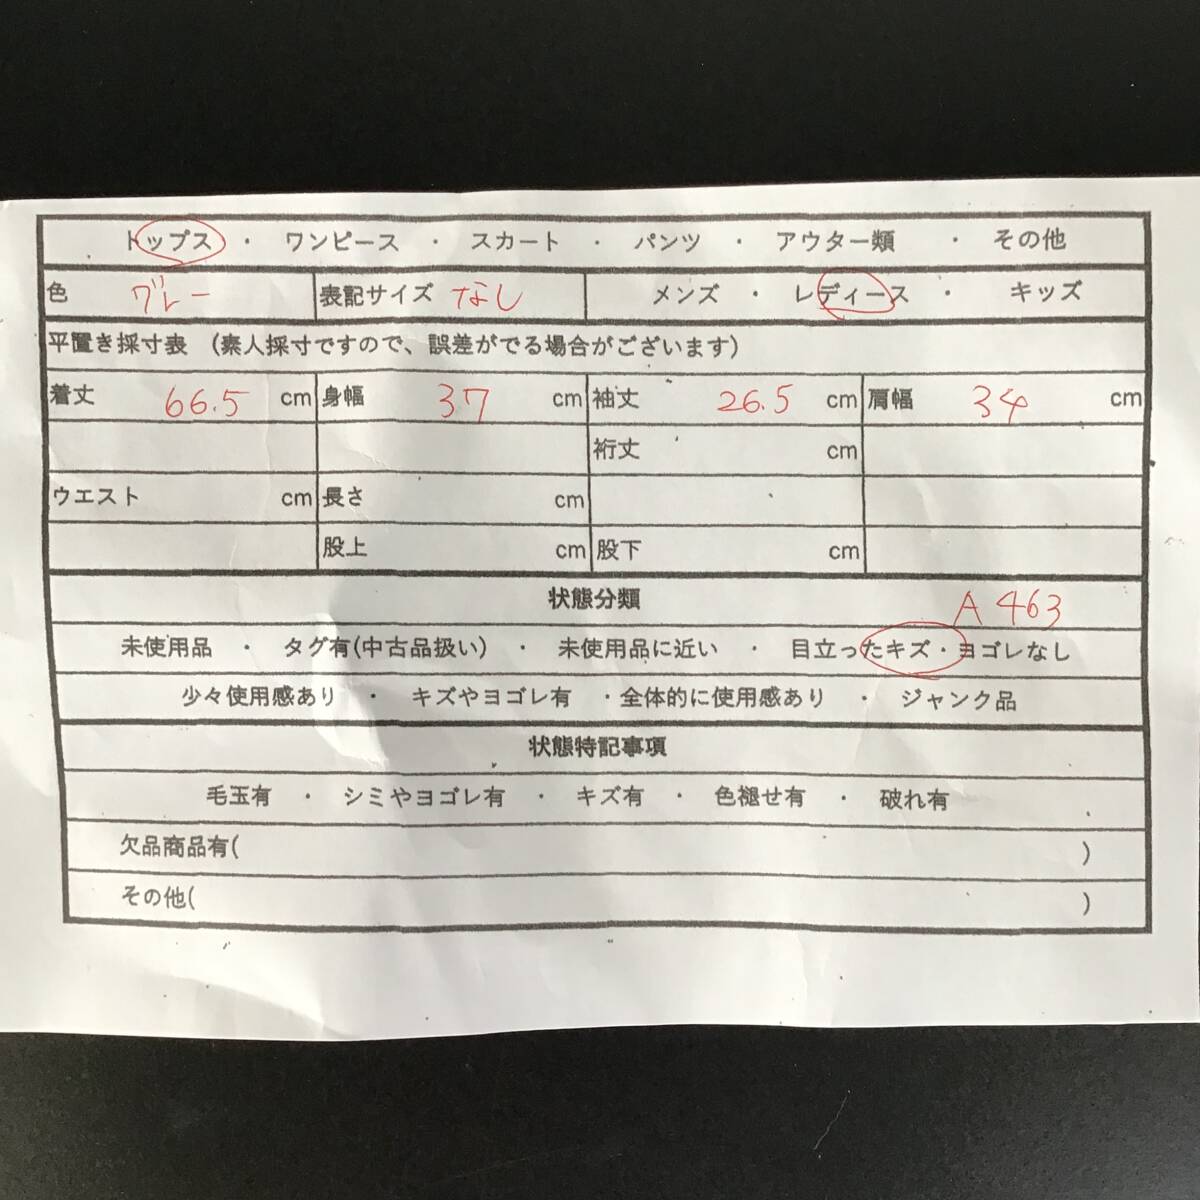 トップス ・ ワンピース ・ スカート ・ パンツ ・ アウター類 ・ その他
色 グレー 表記サイズ なし メンズ ・ レディース ・ キッズ
平置き採寸表 (素人採寸ですので、誤差がでる場合がございます)
着丈 66.5 cm 身幅 37 cm 袖丈 26.5 cm 肩幅 34 cm
裄丈 cm
ウエスト cm 長さ cm
股上 cm 股下 cm
状態分類 A 463
未使用品 ・ タグ有(中古品扱い) ・ 未使用品に近い ・ 目立ったキズ・ヨゴレなし
少々使用感あり ・ キズやヨゴレ有 ・全体的に使用感あり ・ ジャンク品
状態特記事項
毛玉有 ・ シミやヨゴレ有 ・ キズ有 ・ 色褪せ有 ・ 破れ有
欠品商品有( )
その他( )